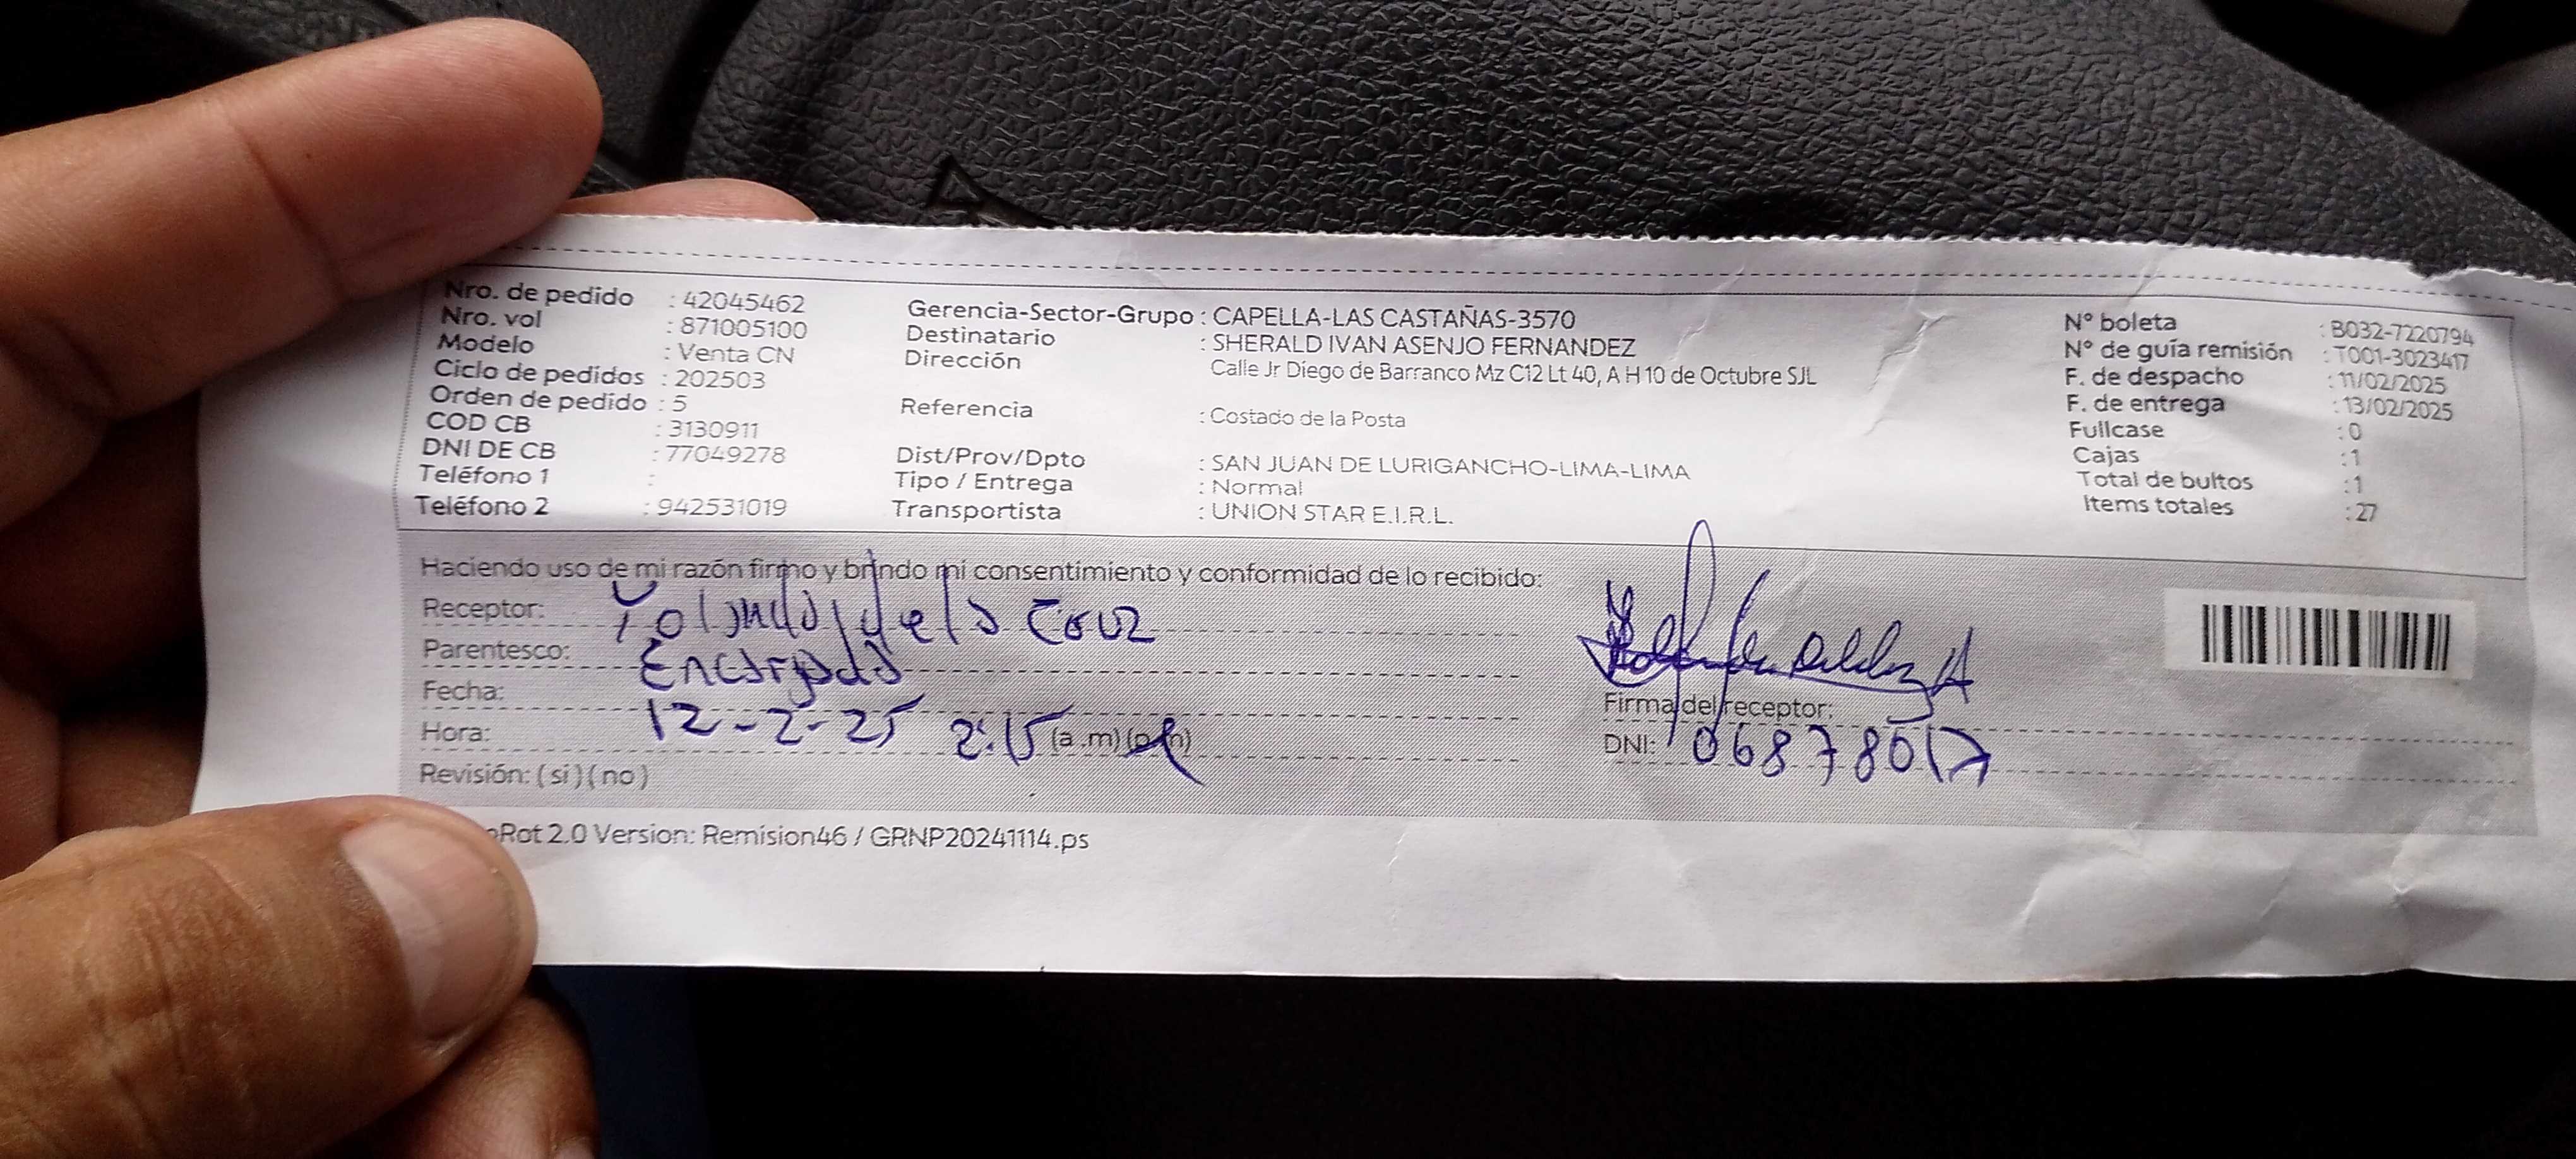 Nro. de pedido : 42045462
Nro. vol : 871005100
Modelo : Venta CN
Ciclo de pedidos : 202503
Orden de pedido : 5
COD CB : 3130911
DNI DE CB : 77049278
Teléfono 1 :
Teléfono 2 : 942531019
Gerencia-Sector-Grupo : CAPELLA-LAS CASTAÑAS-3570
Destinatario : SHERALD IVAN ASENJO FERNANDEZ
Dirección Calle Jr Diego de Barranco Mz C12 Lt 40, A H 10 de Octubre SJL
Referencia : Costado de la Posta
Dist/Prov/Dpto : SAN JUAN DE LURIGANCHO-LIMA-LIMA
Tipo / Entrega : Normal
Transportista : UNION STAR E.I.R.L.
N° boleta : B032-7220794
N° de guía remisión : T001-3023417
F. de despacho : 11/02/2025
F. de entrega : 13/02/2025
Fullcase : 0
Cajas : 1
Total de bultos : 1
Items totales : 27
Haciendo uso de mi razón firmo y brindo mi consentimiento y conformidad de lo recibido:
Receptor: Yolanda de la Cruz
Parentesco: Encargada
Fecha: 12-2-25
Hora: 2:15 (a.m) (p.m)
Revisión: (si) (no)
Firma del receptor:
DNI: 06878017
Rot 2.0 Version: Remision46 / GRNP20241114.ps